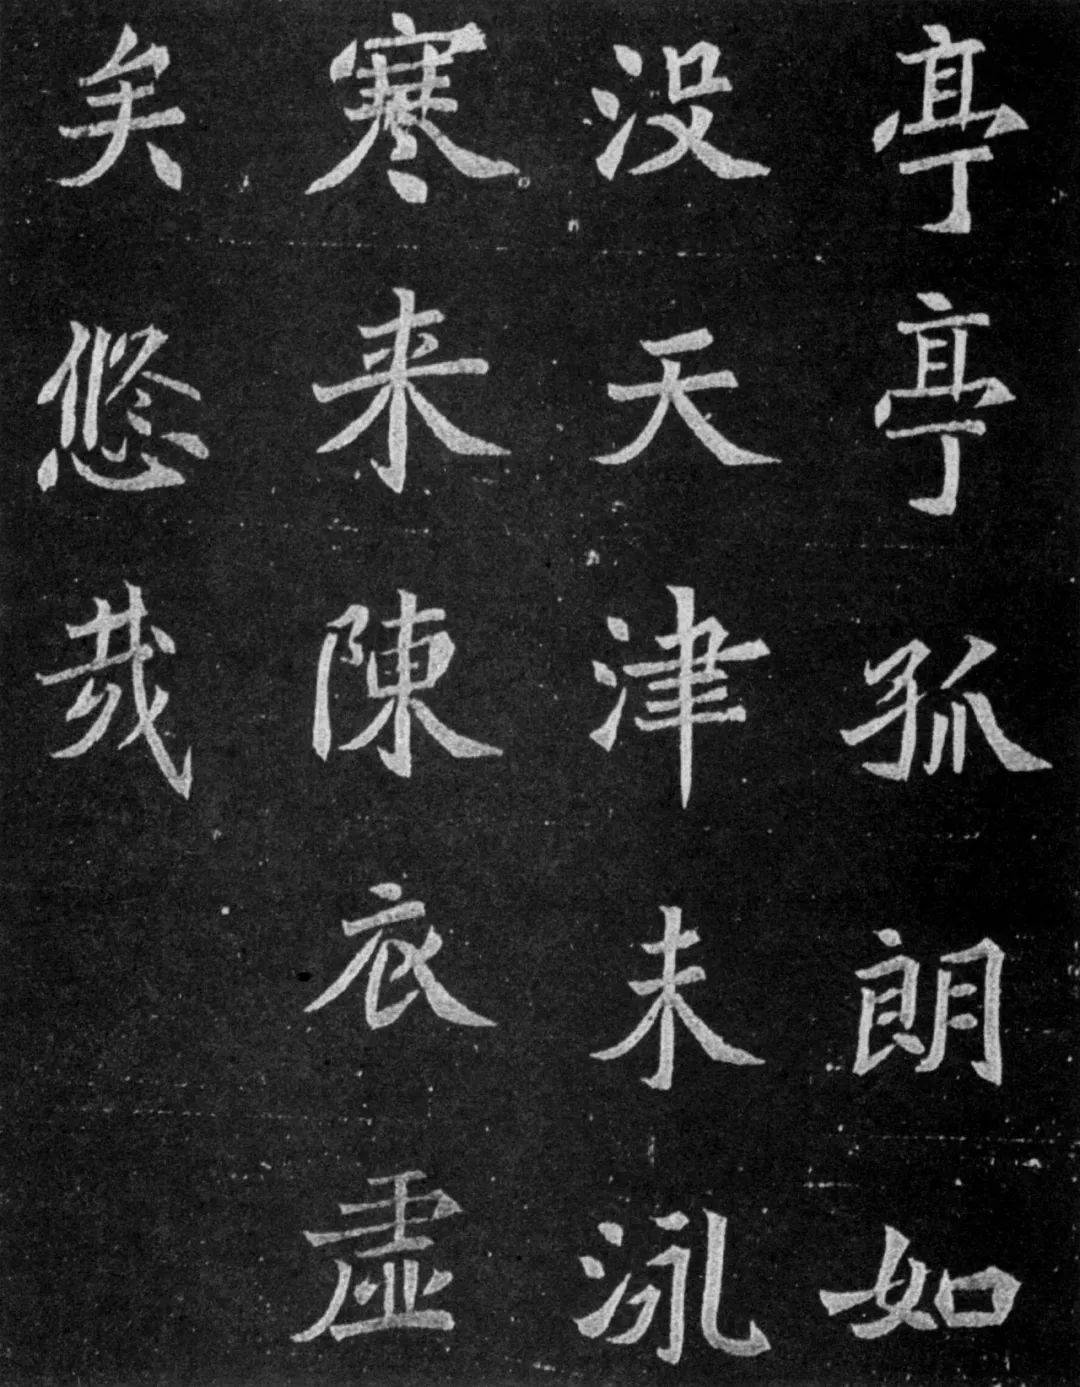 亭亭孤朗如
没天津未
寒来陳衣虚
矣悠哉